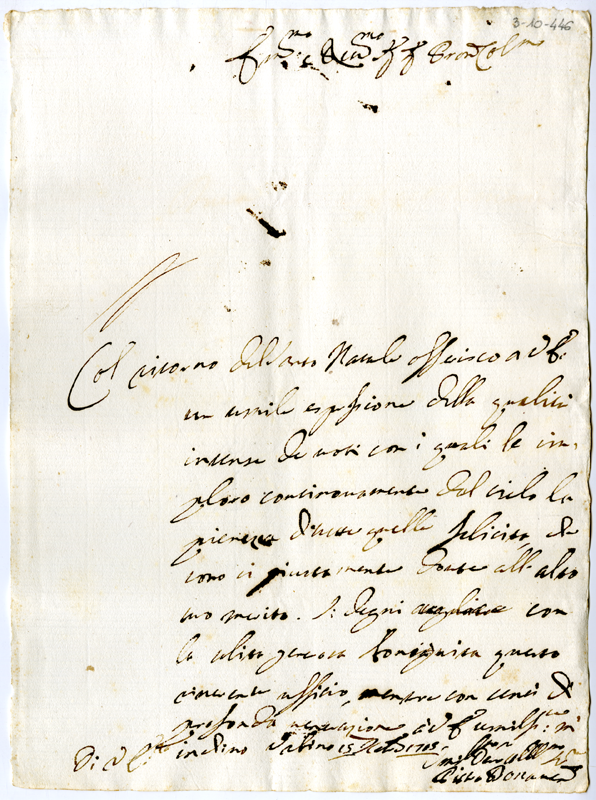 3-10-446
Em.mo e Rev.mo Sig. Sig. Pron. Col.mo
Col ritorno del Santo Natale offerisco a V. E.
un umile espressione della qualità
intensa de voti con i quali le im-
ploro continovamente dal cielo la
pienezza di tutte quelle felicità, che
sono si giustamente dovute all'alto
suo merito. Si degni con
la solita generosa benignità questo
riverente ufficio, mentre con sensi di
profonda venerazione a V. E. umiliss.te m'
inchino 1705
Di V. E.